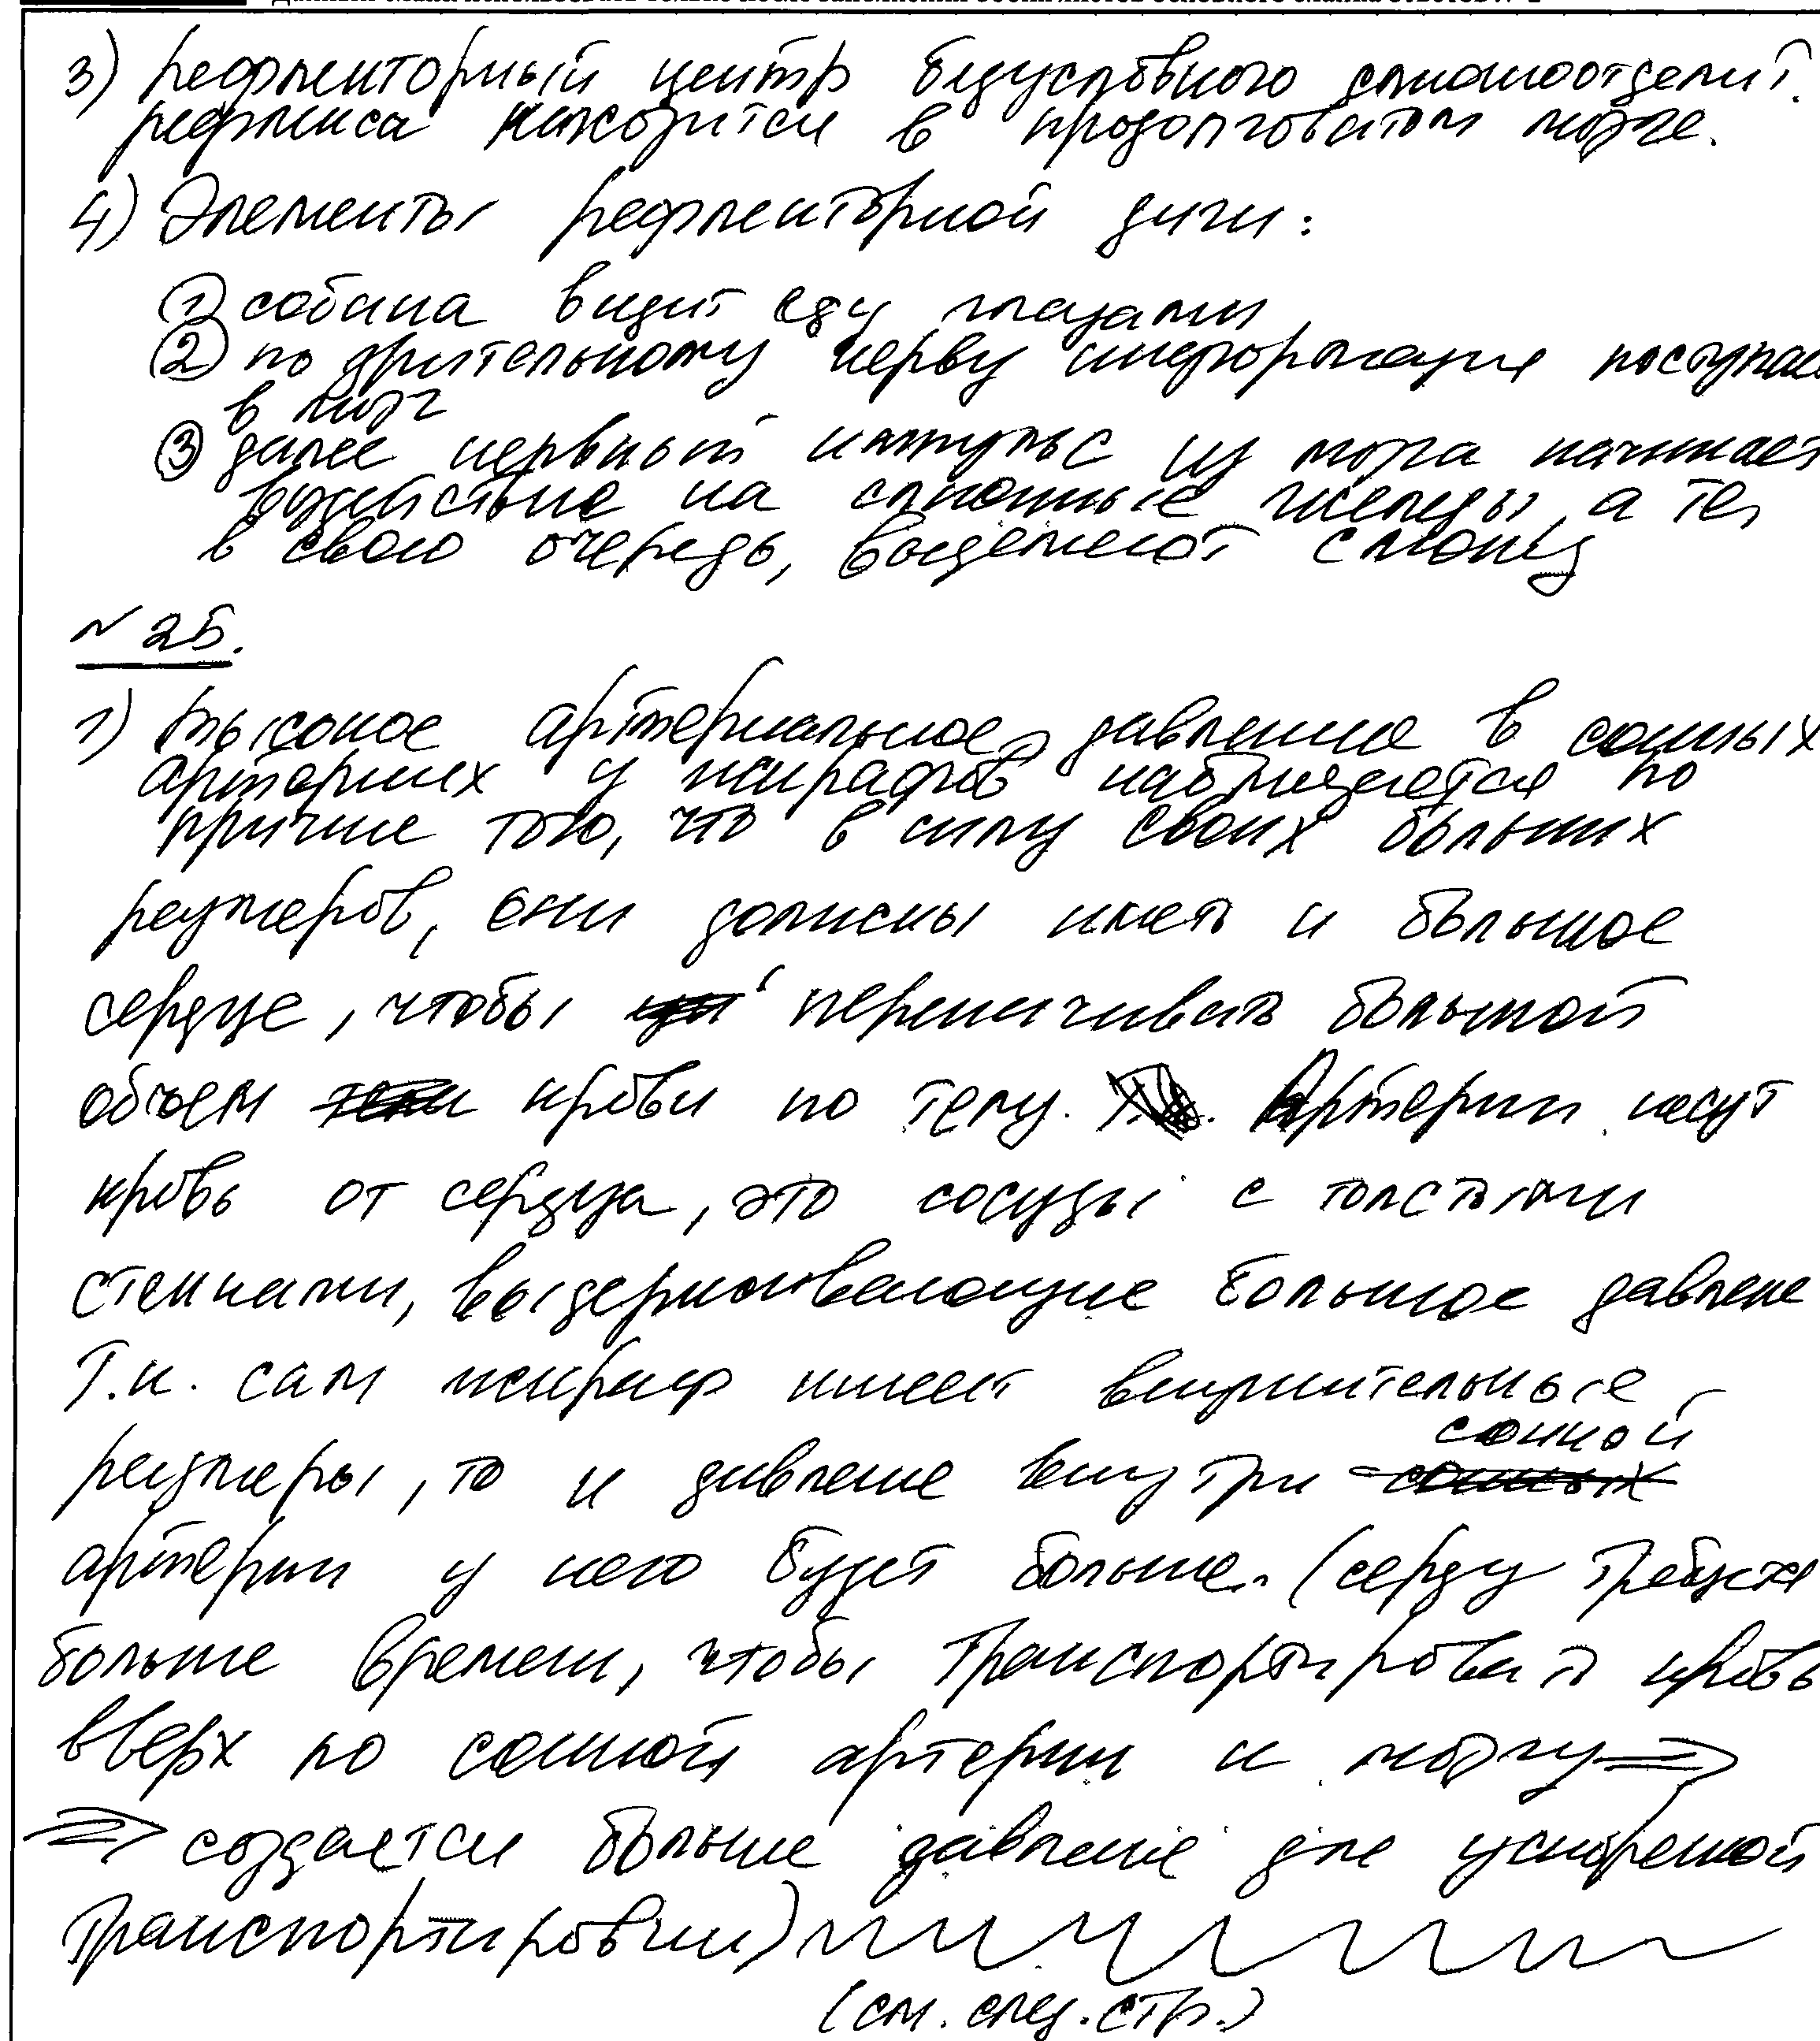 3) Рефлекторный центр безусловного слюноотделит.
рефлекса находится в продолговатом мозге.
4) Элементы рефлекторной дуги:
① собака видит еду глазами
② по зрительному нерву информация поступае
в мозг
③ далее нервный импульс из мозга начинает
воздействие на слюнные железы, а те,
в свою очередь, выделяют слюну
№ 25.
1) Высокое артериальное давление в сонных
артериях у жирафов наблюдается по
причине того, что в силу своих больших
размеров, они должны иметь и большое
сердце, чтобы перекачивать большой
объем крови по телу. Артерии несут
кровь от сердца, это сосуды с толстыми
стенками, выдерживающие большое давление
Т.к. сам жираф имеет внушительные
сонной
размеры, то и давление внутри сонных
артерии у него будет больше. (сердцу требуется
больше времени, чтобы транспортировать кровь
вверх по сонной артерии к мозгу ⇒
⇒ создается больше давление для ускоренной
транспортировки)
(см. след. стр.)